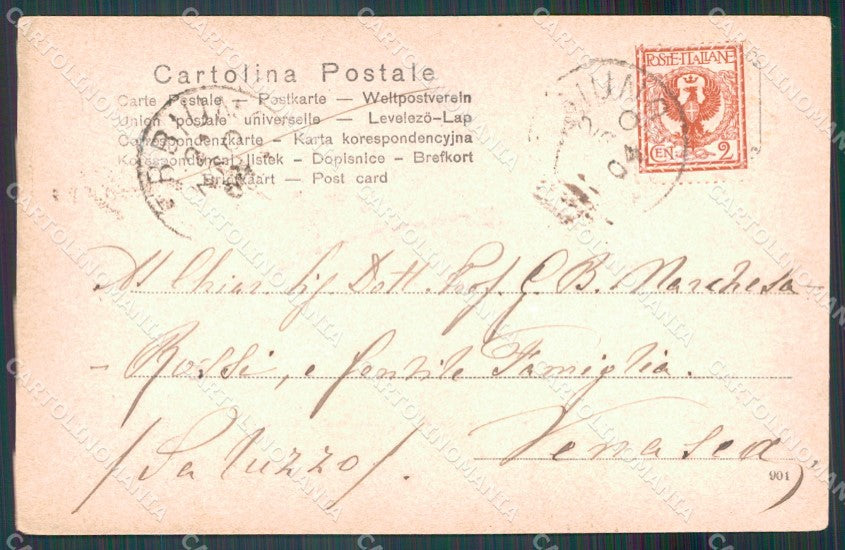 Cartolina Postale
Carte Postale — Postkarte — Weltpostverein
Union postale universelle — Levelező-Lap
Correspondenzkarte - Karta korespondencyjna
Korespondenční lístek - Dopisnice - Brefkort
Briefkaart — Post card
POSTE·ITALIANE
CEN. 2
04
Al Chiar. Sig. Dott. Prof. G. B. Marchesa-
- Rossi, e gentile Famiglia.
(Saluzzo). Venasca,
901
CARTOLINOMANIA